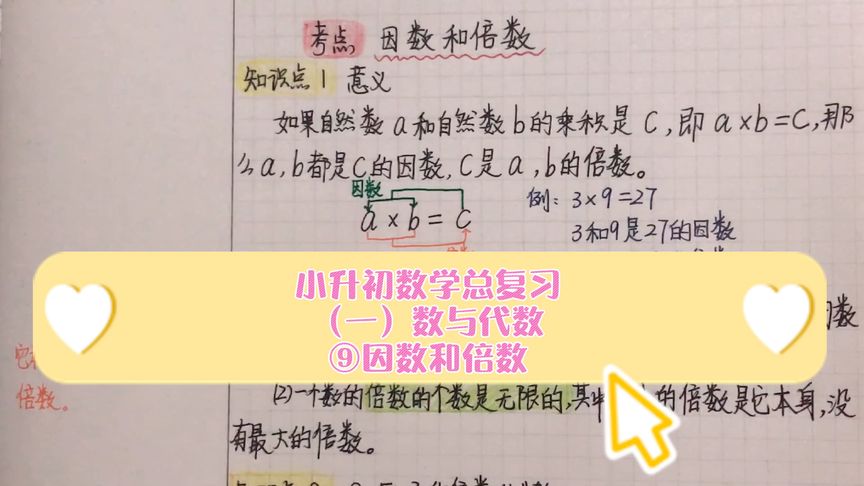 考点 因数和倍数
知识点1 意义
如果自然数a和自然数b的乘积是C,即a×b=C,那
么a,b都是C的因数,C是a,b的倍数。
因数
a×b=C
例:3×9=27
3和9是27的因数
小升初数学总复习
(一)数与代数
⑨因数和倍数
数
倍数。
(2)一个数的倍数的个数是无限的,其中 的倍数是它本身,没
有最大的倍数。